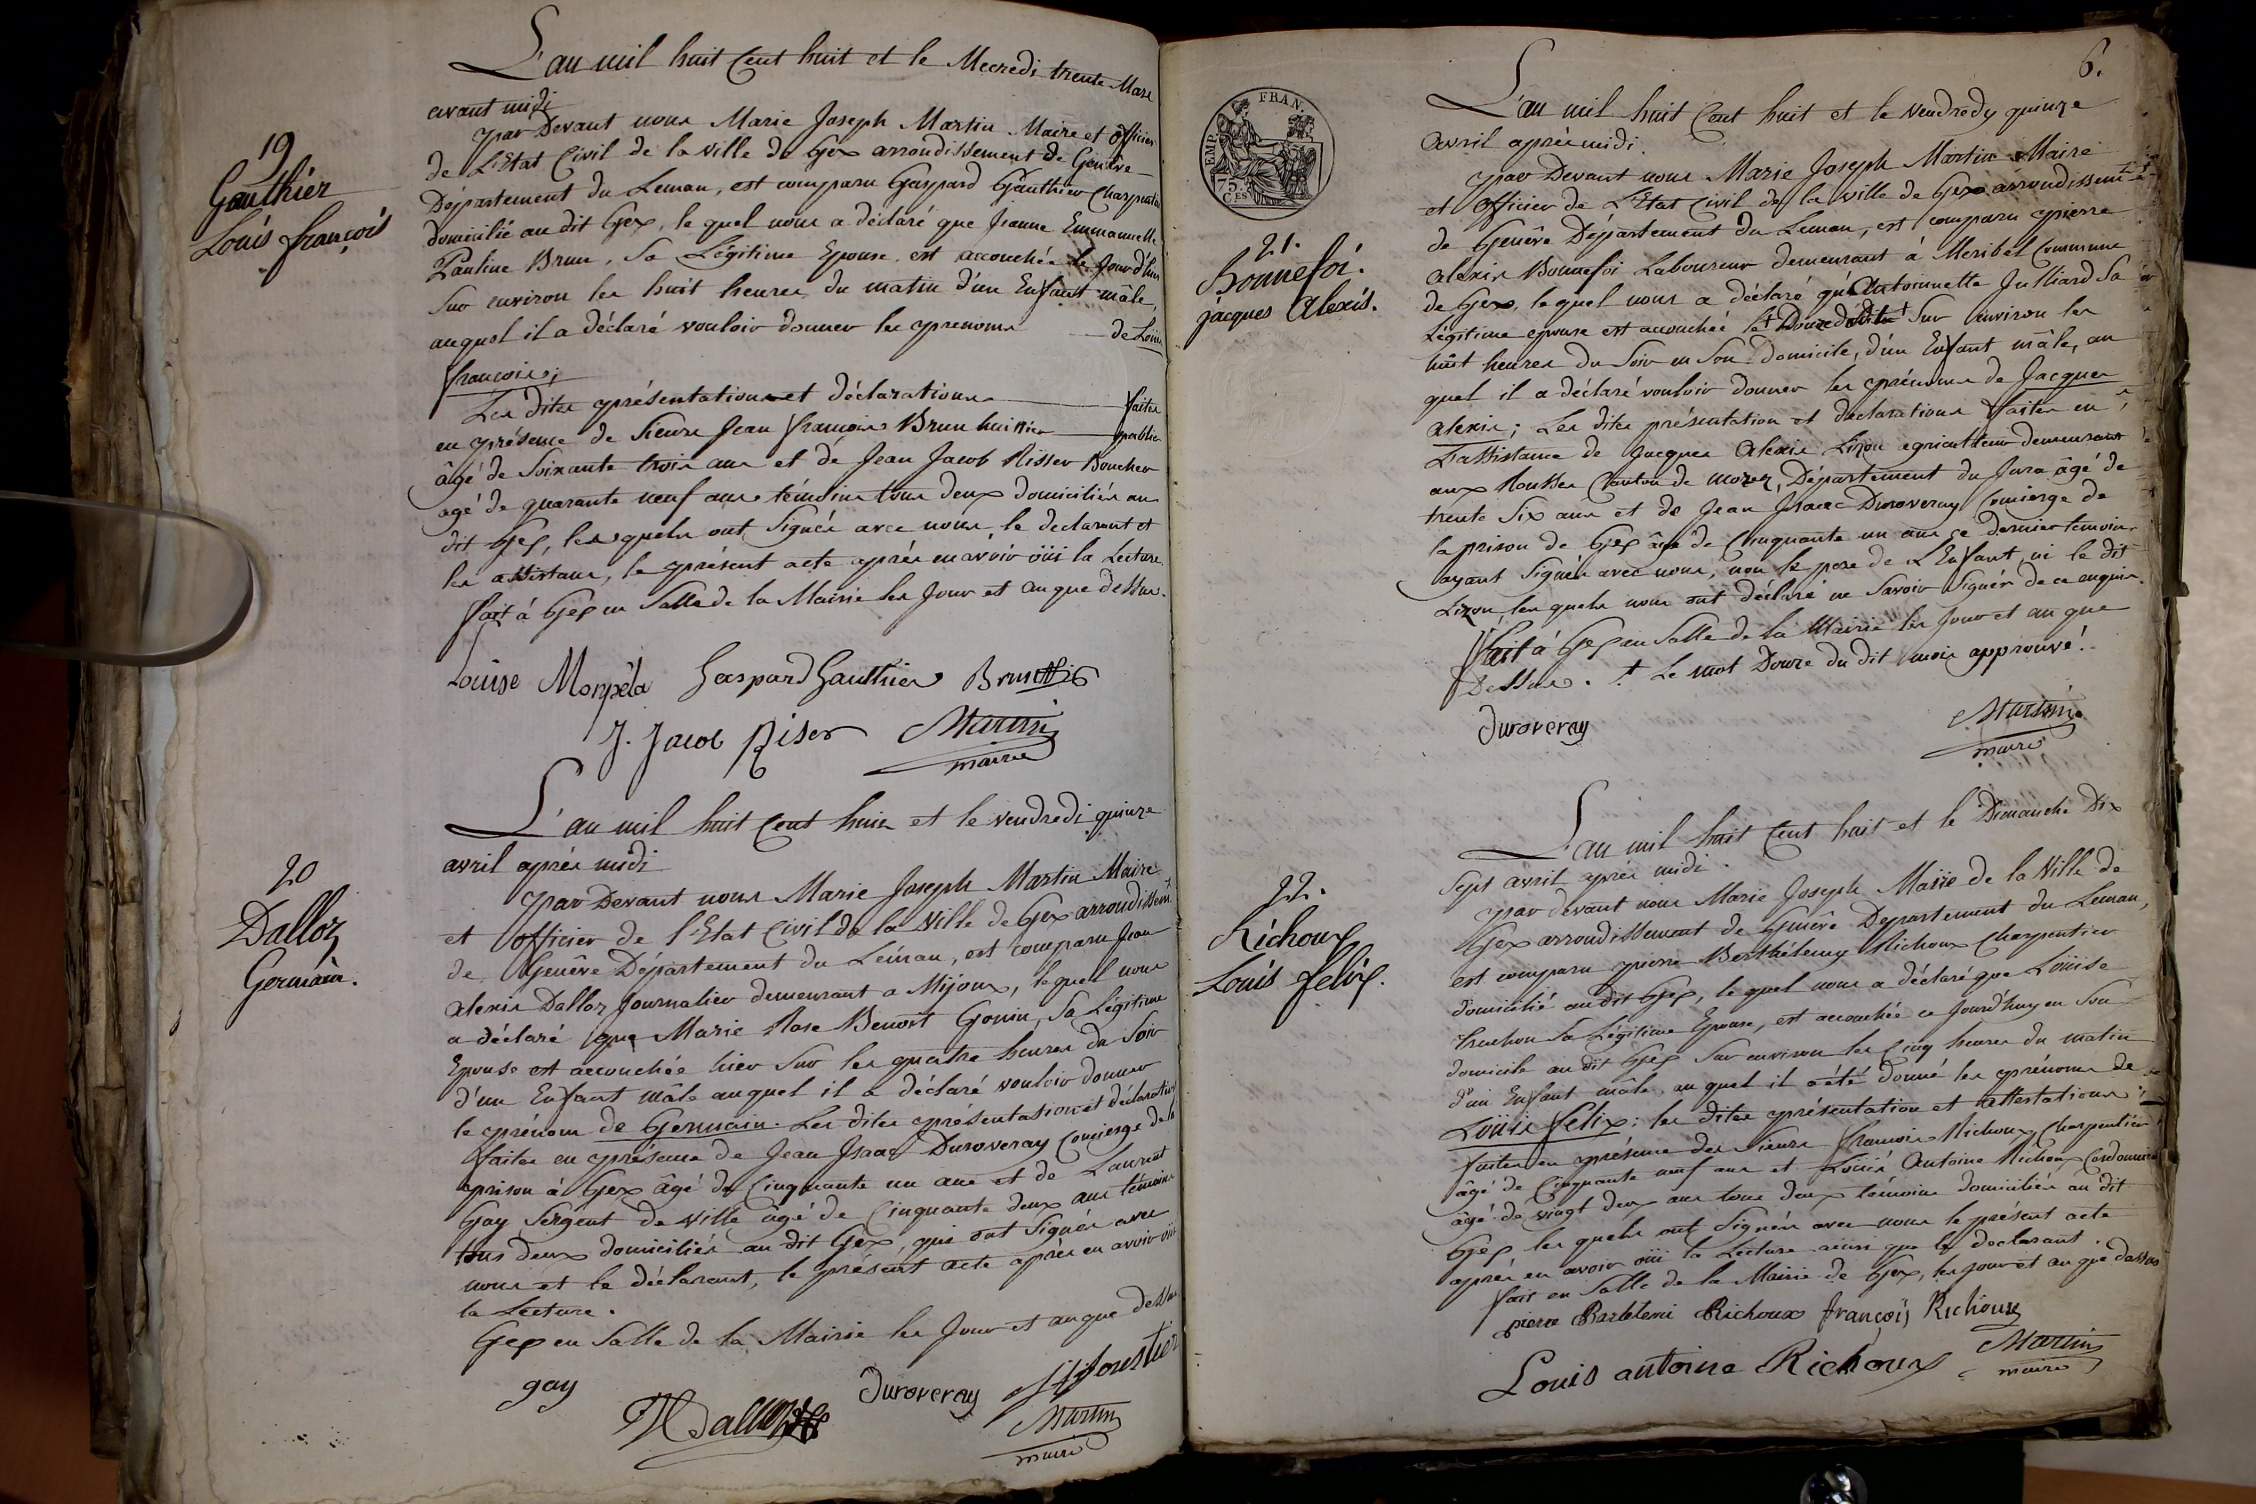 19
Gauthier
Louis françois
L'an mil huit Cent huit et le Mecredi trente Mars
avant midi
par Devant nous Marie Joseph Martin Maire et officier
de L'Etat Civil de la ville de Gex arrondissement de Genêve
Département du Leman, est comparu Gaspard Gauthier Charpentier
domicilié au dit Gex, le quel nous a déclaré que Jeanne Emmanuelle
Pauline Brun, Sa Légitime Epouse, est accouchée le Jourd'huy
Sur environ les huit heures du matin d'un Enfant mâle,
auquel il a déclaré vouloir donner les prenoms de Louis
françois;
Les dites présentations et déclarations faites
en présence de Sieurs Jean françois Brun huissier public
âgé de Soixante trois ans et de Jean Jacob Risser Boucher
agé de quarante neuf ans témoins tous deux domiciliés au
dit Gex, les quels ont Signés avec nous, le declarant et
les assistans, le présent acte après en avoir oüi la Lecture.
fait à Gex en Salle de la Mairie les Jour et an que dessus.
Louise Monpéla Gaspard Gauthier Brun
J. Jacob Riser Martin
maire
20
Dalloz
Germain.
L'an mil huit Cent huit et le vendredi quinze
avril après midi
par Devant nous Marie Joseph Martin Maire
et officier de l'Etat Civil de la ville de Gex arrondissemt
de Genêve Département du Léman, est comparu Jean
alexis Dalloz Journalier demeurant a Mijoux, lequel nous
a déclaré que Marie Rose Benoit Gonin, Sa Légitime
Epouse est accouchée hier Sur les quatre heures du Soir
d'un Enfant mâle auquel il a déclaré vouloir donner
le prénom de Germain. Les dites présentation et déclaration
faites en présence de Jean Isaac Duroveray Concierge de la
prison à Gex âgé de Cinquante un ans et de Laurent
Gay Sergent de ville âgé de Cinquante deux ans témoins
tous deux domiciliés au dit Gex, qui ont Signés avec
nous et le déclarant, le présent acte après en avoir oüi
la Lecture.
Gex en Salle de la Mairie les Jour et an que dessus
gay Dalloz Duroveray
Martin
maire
6.
EMP. FRAN.
75
CES
21.
Bonnefoi.
jacques Alexis.
L'an mil huit Cent huit et le vendredy quinze
avril après midi.
par Devant nous Marie Joseph Martin Maire
et officier de L'Etat Civil de la ville de Gex arrondissemt
de Genêve Département du Leman, est comparu pierre
alexis Bonnefoi Laboureur demeurant à Meribel Commune
de Gex, lequel nous a déclaré qu'Antoinette Julliard Sa
Légitime epouse est accouchée le Douze Sur environ les
huit heures du Soir en Son domicile, d'un Enfant mâle, au
quel il a déclaré vouloir donner les prénoms de Jacques
alexis; Les dites présentation et déclarations faites en
L'assistance de Jacques Alexis Lizon agriculteur demeurant
aux Rousses Canton de morez, Département du Jura âgé de
trente Six ans et de Jean Isaac Duroveray Concierge de
la prison de Gex âgé de Cinquante un ans ce dernier temoin
ayant Signés avec nous, non le pere de L'Enfant, ni le dit
Lizon, les quels nous ont déclaré ne Savoir Signér de ce enquis.
fait à Gex en Salle de la Mairie les Jour et an que
Dessus. + Le mot Douze du dit mois approuvé.
Duroveray Martin
maire
22.
Richoux
Louis felix.
L'an mil huit Cent huit et le Dimanche Dix
Sept avril après midi.
par devant nous Marie Joseph Maire de la Ville de
Gex arrondissement de Genêve Departement du Leman,
est comparu pierre Berthélemy Richoux Charpentier
domicilié au dit Gex, le quel nous a déclaré que Loüise
truchon Sa Légitime Epouse, est accouchée ce Jourd'huy en Son
domicile au dit Gex Sur environ les Cinq heures du matin
d'un Enfant mâle, au quel il a été donné les prénoms de
Loüis felix; les dites présentation et attestations
faites en présence des Sieurs françois Richoux Charpentier
âgé de Cinquante neuf ans et Loüis Antoine Richoux Cordonnier
âgé de vingt deux ans tous deux témoins domiciliés au dit
Gex les quels ont Signés avec nous le présent acte
après en avoir oüi la Lecture ainsi que le declarant.
fait en Salle de la Mairie de Gex, les jour et an que dessus
pierre Bartelemi Richoux françois Richoux
Louis antoine Richoux Martin
maire